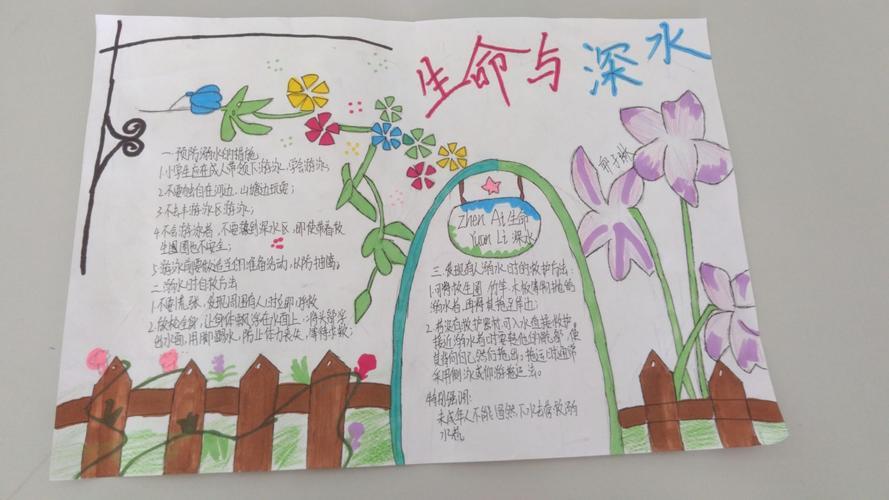 生命与深水
一 预防溺水的措施
1.小学生应在成人带领下游泳,学会游泳;
2.不要独自在河边、山塘边玩耍;
3.不去非游泳区游泳;
4.不会游泳者,不要游到深水区,即使带着救
生圈也不安全;
5.游泳前要做适当的准备活动,以防抽筋。
二 溺水时自救方法
1.不要慌张,发现周围有人时立即呼救
2.放松全身,让身体飘浮在水面上,将头部浮
出水面,用脚踢水,防止体力丧失,等待救援;
Zhen Ai 生命
Yuan Li 深水
三.发现有人溺水时的救护方法:
1.可将救生圈、竹竿、木板等
溺水者,再将其拖至岸边;
2.
接近溺水者时要
其背向自己然后拖出;拖运时通常
采用侧泳或仰游拖运法。
特别强调:
未成年人不能冒然下水去营救溺
水者。